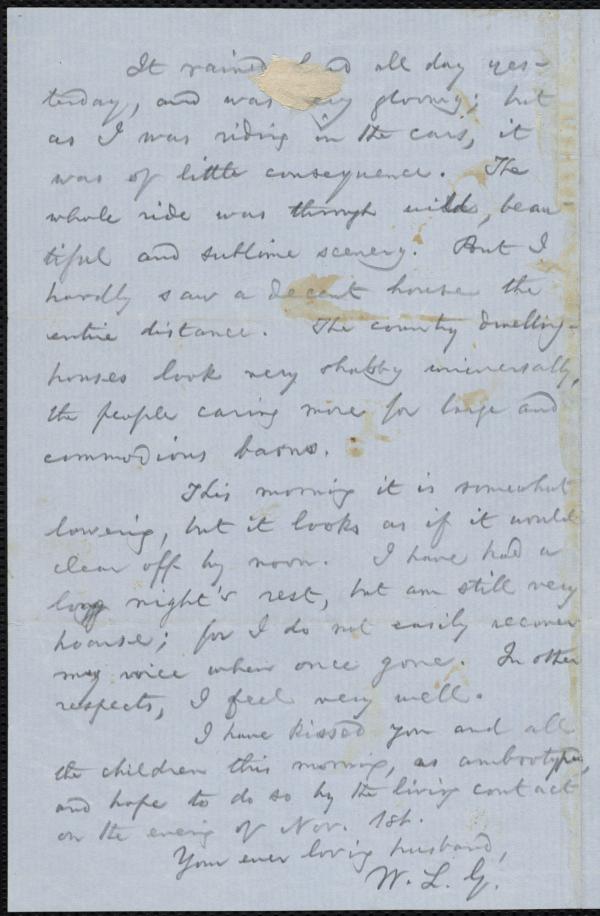 It rained hard all day yes-
terday, and was very gloomy; but
as I was riding in the cars, it
was of little consequence. The
whole ride was through wild, beau-
tiful and sublime scenery. But I
hardly saw a decent house the
entire distance. The country dwelling-
houses look very shabby universally,
the people caring more for large and
commodious barns.
This morning it is somewhat
lowering, but it looks as if it would
clear off by noon. I have had a
long night's rest, but am still very
hoarse; for I do not easily recover
my voice when once gone. In other
respects, I feel very well.
I have kissed you and all
the children this morning, as ambrotyped,
and hope to do so by the living contact
on the evening of Nov. 1st.
Your ever loving husband,
W. L. G.